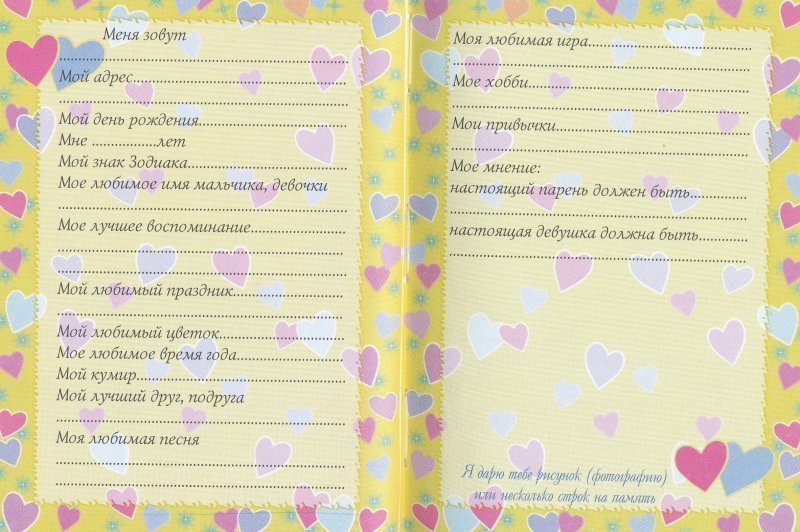 Меня зовут
Мой адрес
Мой день рождения
Мне ................лет
Мой знак Зодиака
Мое любимое имя мальчика, девочки
Мое лучшее воспоминание
Мой любимый праздник
Мой любимый цветок
Мое любимое время года
Мой кумир
Мой лучший друг, подруга
Моя любимая песня
Моя любимая игра
Мое хобби
Мои привычки
Мое мнение:
настоящий парень должен быть
настоящая девушка должна быть
Я дарю тебе рисунок (фотографию)
или несколько строк на память